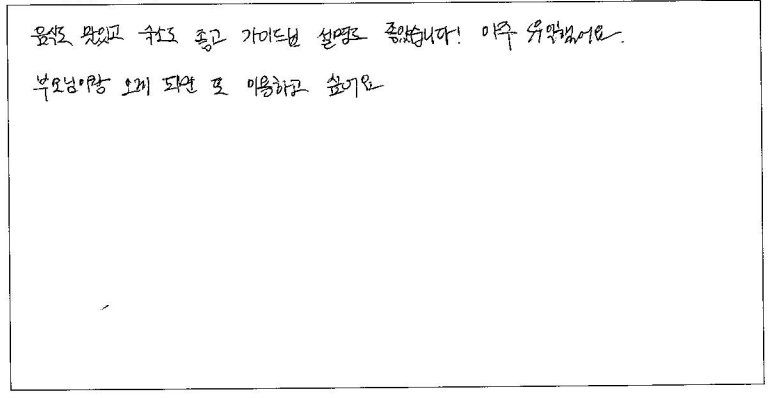 음식도 맛있고 숙소도 좋고 가이드님 설명도 좋았습니다! 아주 유익했어요.
부모님이랑 오게 되면 또 이용하고 싶어요